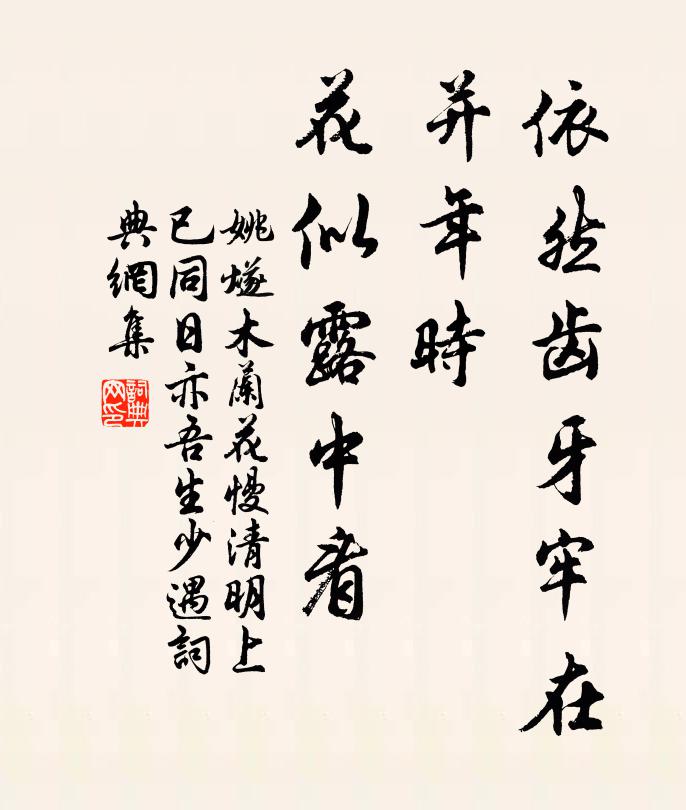 依然齿牙牢在
并年時
花似露中看
姚燧木蘭花慢清明上
已同日亦吾生少遇詞
典網集
詞典
网印